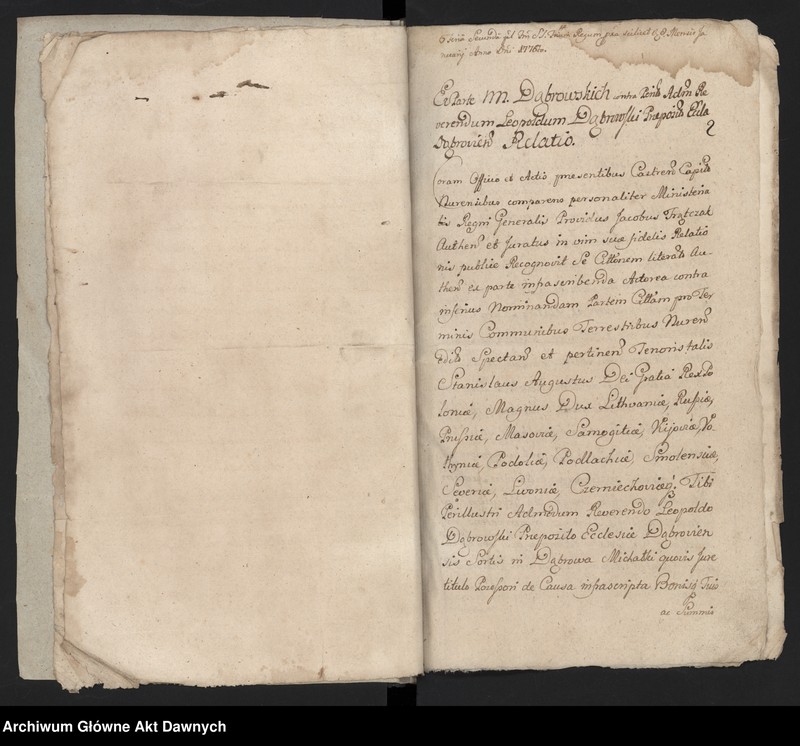 Feria Secunda post Festum SS. Trium Regum
nuarij Anno Dni 1776to.
Ex Parte MM. Dąbrowskich contra Perills Admn Re
verendum Leopoldum Dąbrowski Præposit Eccla
Dąbrovien Relatio.
2
Coram Officio et Actis præsentibus Castren Capit
Nurenibus comparens personaliter Ministeria
lis Regni Generalis Providus Jacobus
Authen et Juratus in vim suæ fidelis Relatio
nis publice Recognovit Se Cittonem literat Au
then ex parte infrascribenda Actorea contra
inferius Nominandam Partem Cittam pro Ter
minis Communibus Terrestribus Nuren
Edit Spectan et pertinen Tenoris talis
Stanislaus Augustus Dei Gratia Rex Po
loniæ, Magnus Dux Lithvaniæ, Russiæ,
Prussiæ, Masoviæ, Samogitiæ, Kijoviæ, Vo
lhyniæ, Podoliæ, Podlachiæ, Smolensciæ,
Severiæ, Livoniæ, Czerniechoviæq. Tibi
Perillustri Admodum Reverendo Leopoldo
Dąbrowski Præposito Ecclesiæ Dąbrovien
sis Sortis in Dąbrowa Michałki quovis Jure
titulo Possessori de Causa infrascripta Bonisq
ac Summis
Archiwum Główne Akt Dawnych